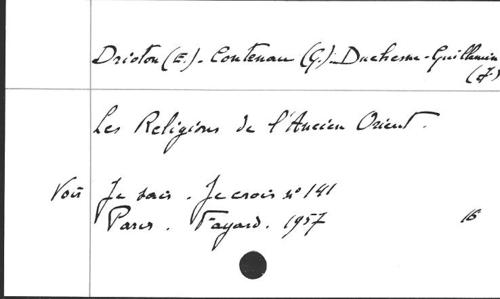 Drioton (E.) - Contenau (G.) - Duchesne-Guillemin
(J)
Les Religions de l'Ancien Orient.
Voir Je sais. Je crois n° 141
Paris. Fayard. 1957 16